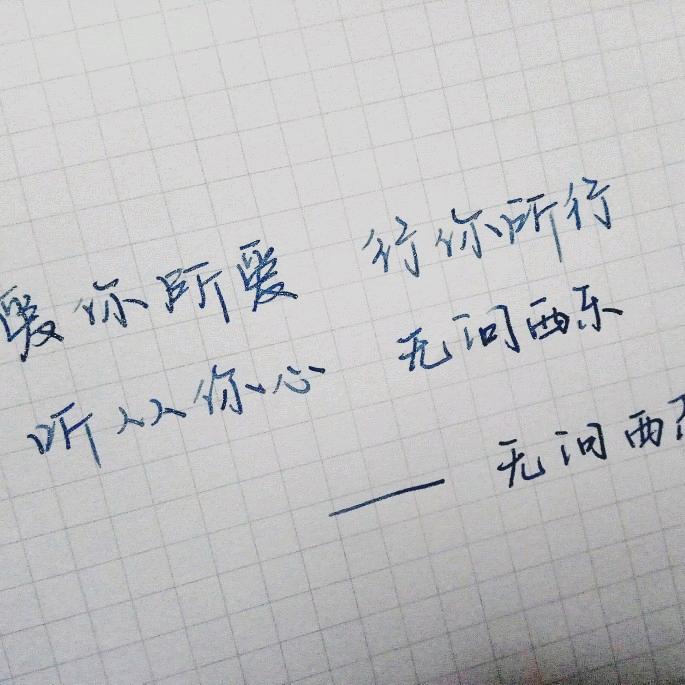 爱你所爱 行你所行
听从你心 无问西东
—— 无问西东